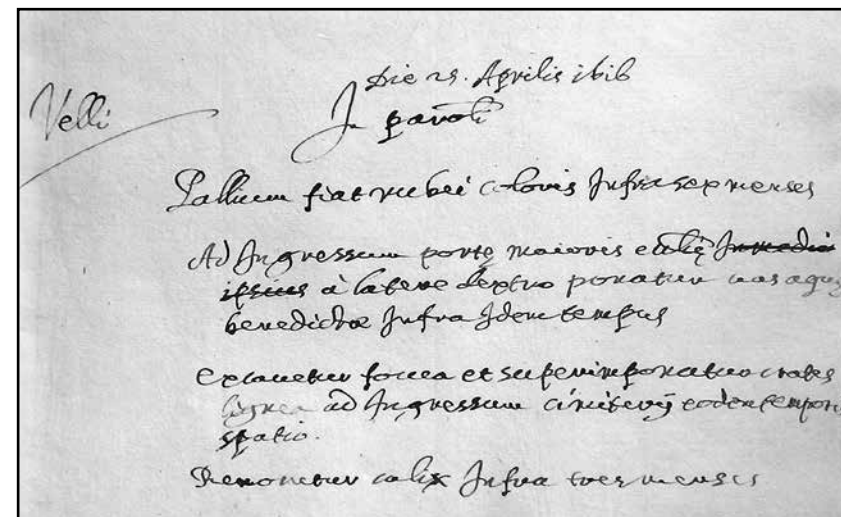 Die 25. Aprilis 1616
Velli
In paroli
Pallium fiat rubei coloris Infra sex menses
Ad Ingressum porte maioris ecclię Inmedio
ipsius à latere dextro ponatur uas aquę
benedictæ Infra Idem tempus
Excauetur fouea et superimponatur crates
lignea ad Ingressum cimiterij eodem temporis
spatio.
Renouetur calix Infra tres menses